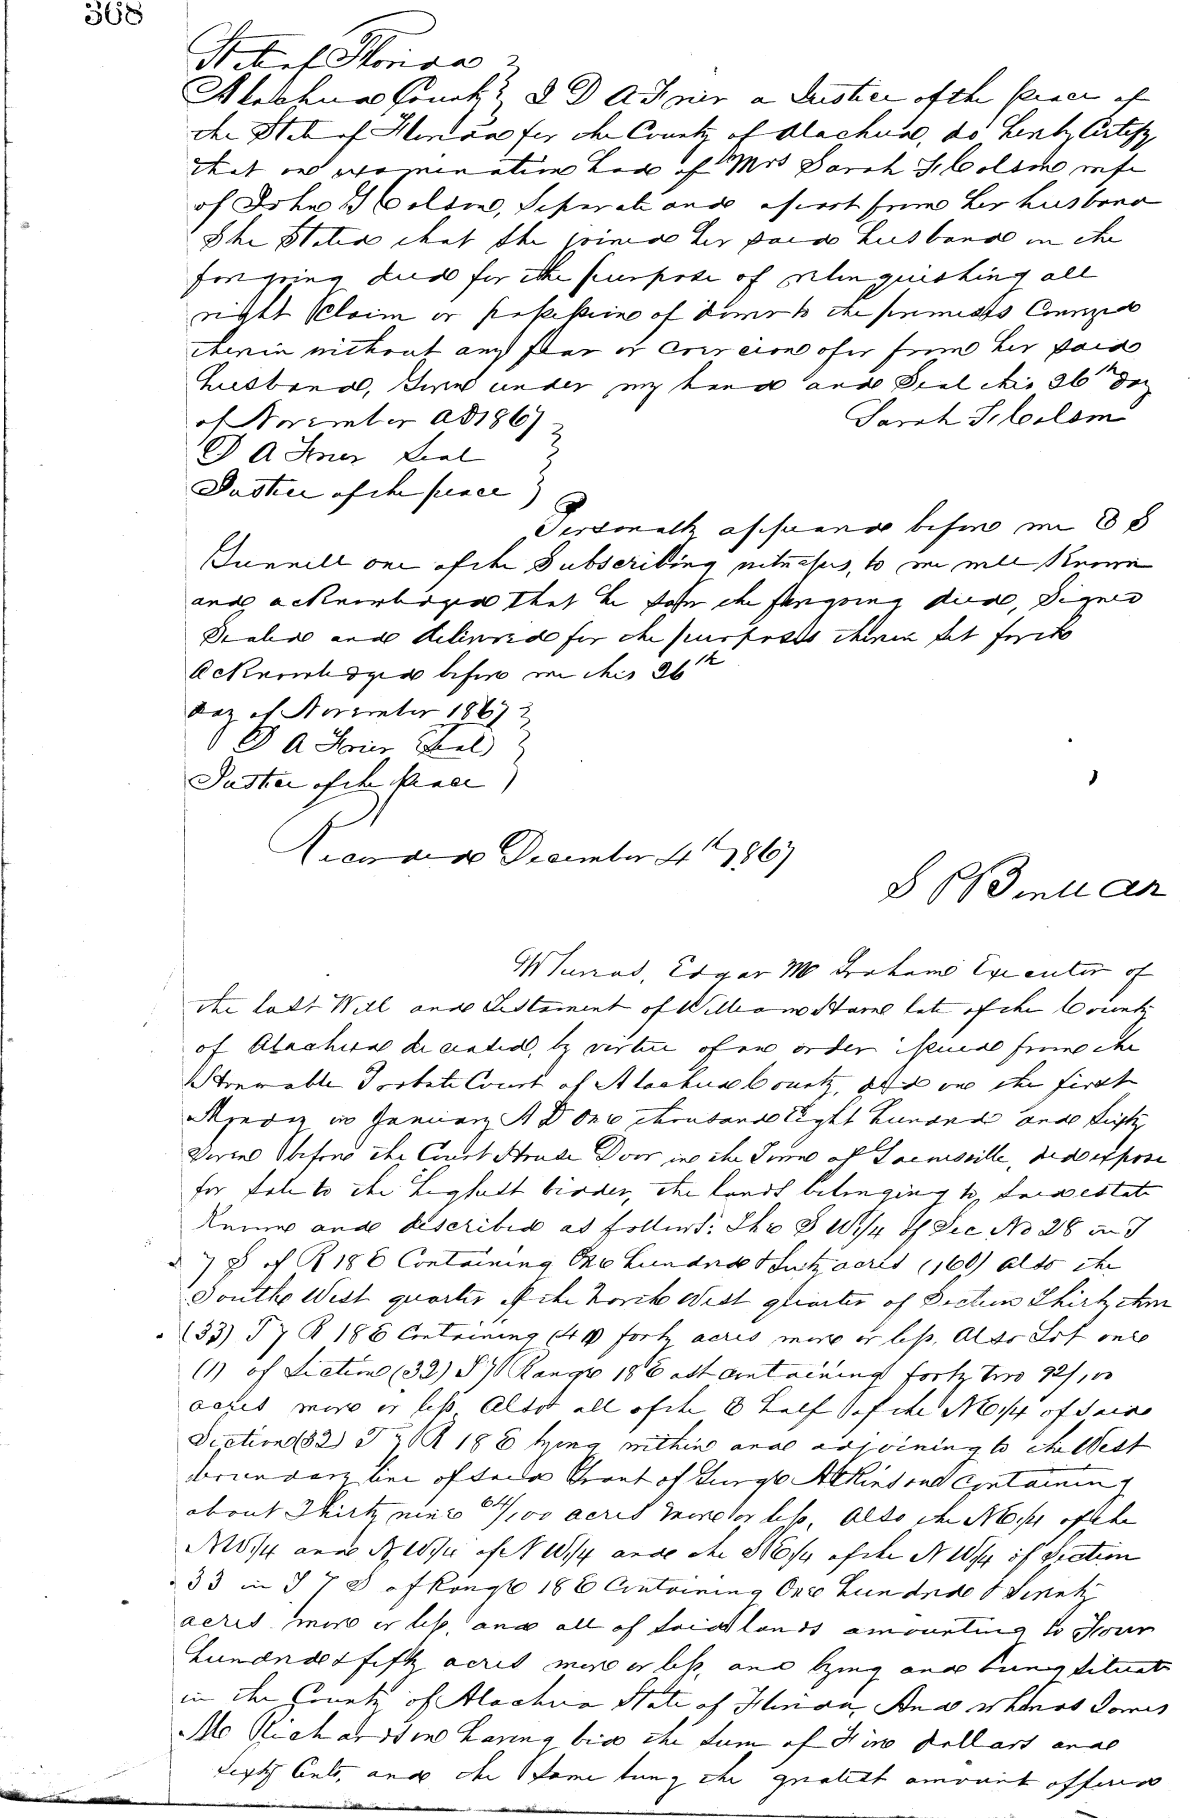 368
State of Florida
Alachua County I D A Frier a Justice of the peace of
the State of Florida for the County of Alachua, do hereby Certify
that on examination had of Mrs Sarah F Colson wife
of John G Colson, Seperate and apart from her husband
She Stated that She joined her said husband in the
foregoing deed for the purpose of relinquishing all
right Claim or possession of dower to the premises Conveyed
therein without any fear or of or from her said
husband, Given under my hand and Seal this 26th Day
of November AD 1867 Sarah F Colson
D A Frier Seal
Justice of the peace
Personally appeared before me E S
one of the Subscribing witnesses, to me well Known
and acknowledged that he saw the foregoing deed, Signed
Sealed and delivered for the purposes therein Set forth
Acknowledged before me this 26th
day of November 1867
D A Frier (Seal)
Justice of the peace
Recorded December 4th 1867
S
Whereas, Edgar M Graham Executor of
the last Will and Testament of William late of the County
of Alachua deceased, by virtue of an order issued from the
Honorable Probate Court of Alachua County, did on the first
Monday in January A D One thousand Eight hundred and Sixty
Seven before the Court House Door in the Town of Gainesville, did expose
for Sale to the highest bidder, the lands belonging to Said estate
Known and described as follows: The S W 1/4 of Sec No 28 in T
7 S of R 18 E Containing One hundred & Sixty acres (160) also the
South West quarter of the North West quarter of Section Thirty three
(33) T 7 R 18 E Containing (40) forty acres more or less. Also Lot one
(1) of Section (32) T 7 Range 18 East containing forty two 92/100
acres more or less Also all of the E half of the NE 1/4 of Said
Section (32) T 7 R 18 E lying within and adjoining to the West
boundary line of Said Grant of George Atkinson Containing
about Thirty nine 64/100 acres more or less, Also the NE 1/4 of the
NW 1/4 and NW 1/4 of NW 1/4 and the SE 1/4 of the N W 1/4 of Section
33 in T 7 S of Range 18 E Containing One hundred & Seventy
acres more or less, and all of Said lands amounting to Four
hundred & fifty acres more or less, and lying and being Situate
in the County of Alachua State of Florida, And whereas James
Mc Richardson having bid the Sum of Five dollars and
Sixty Cents, and the Same being the greatest amount offered